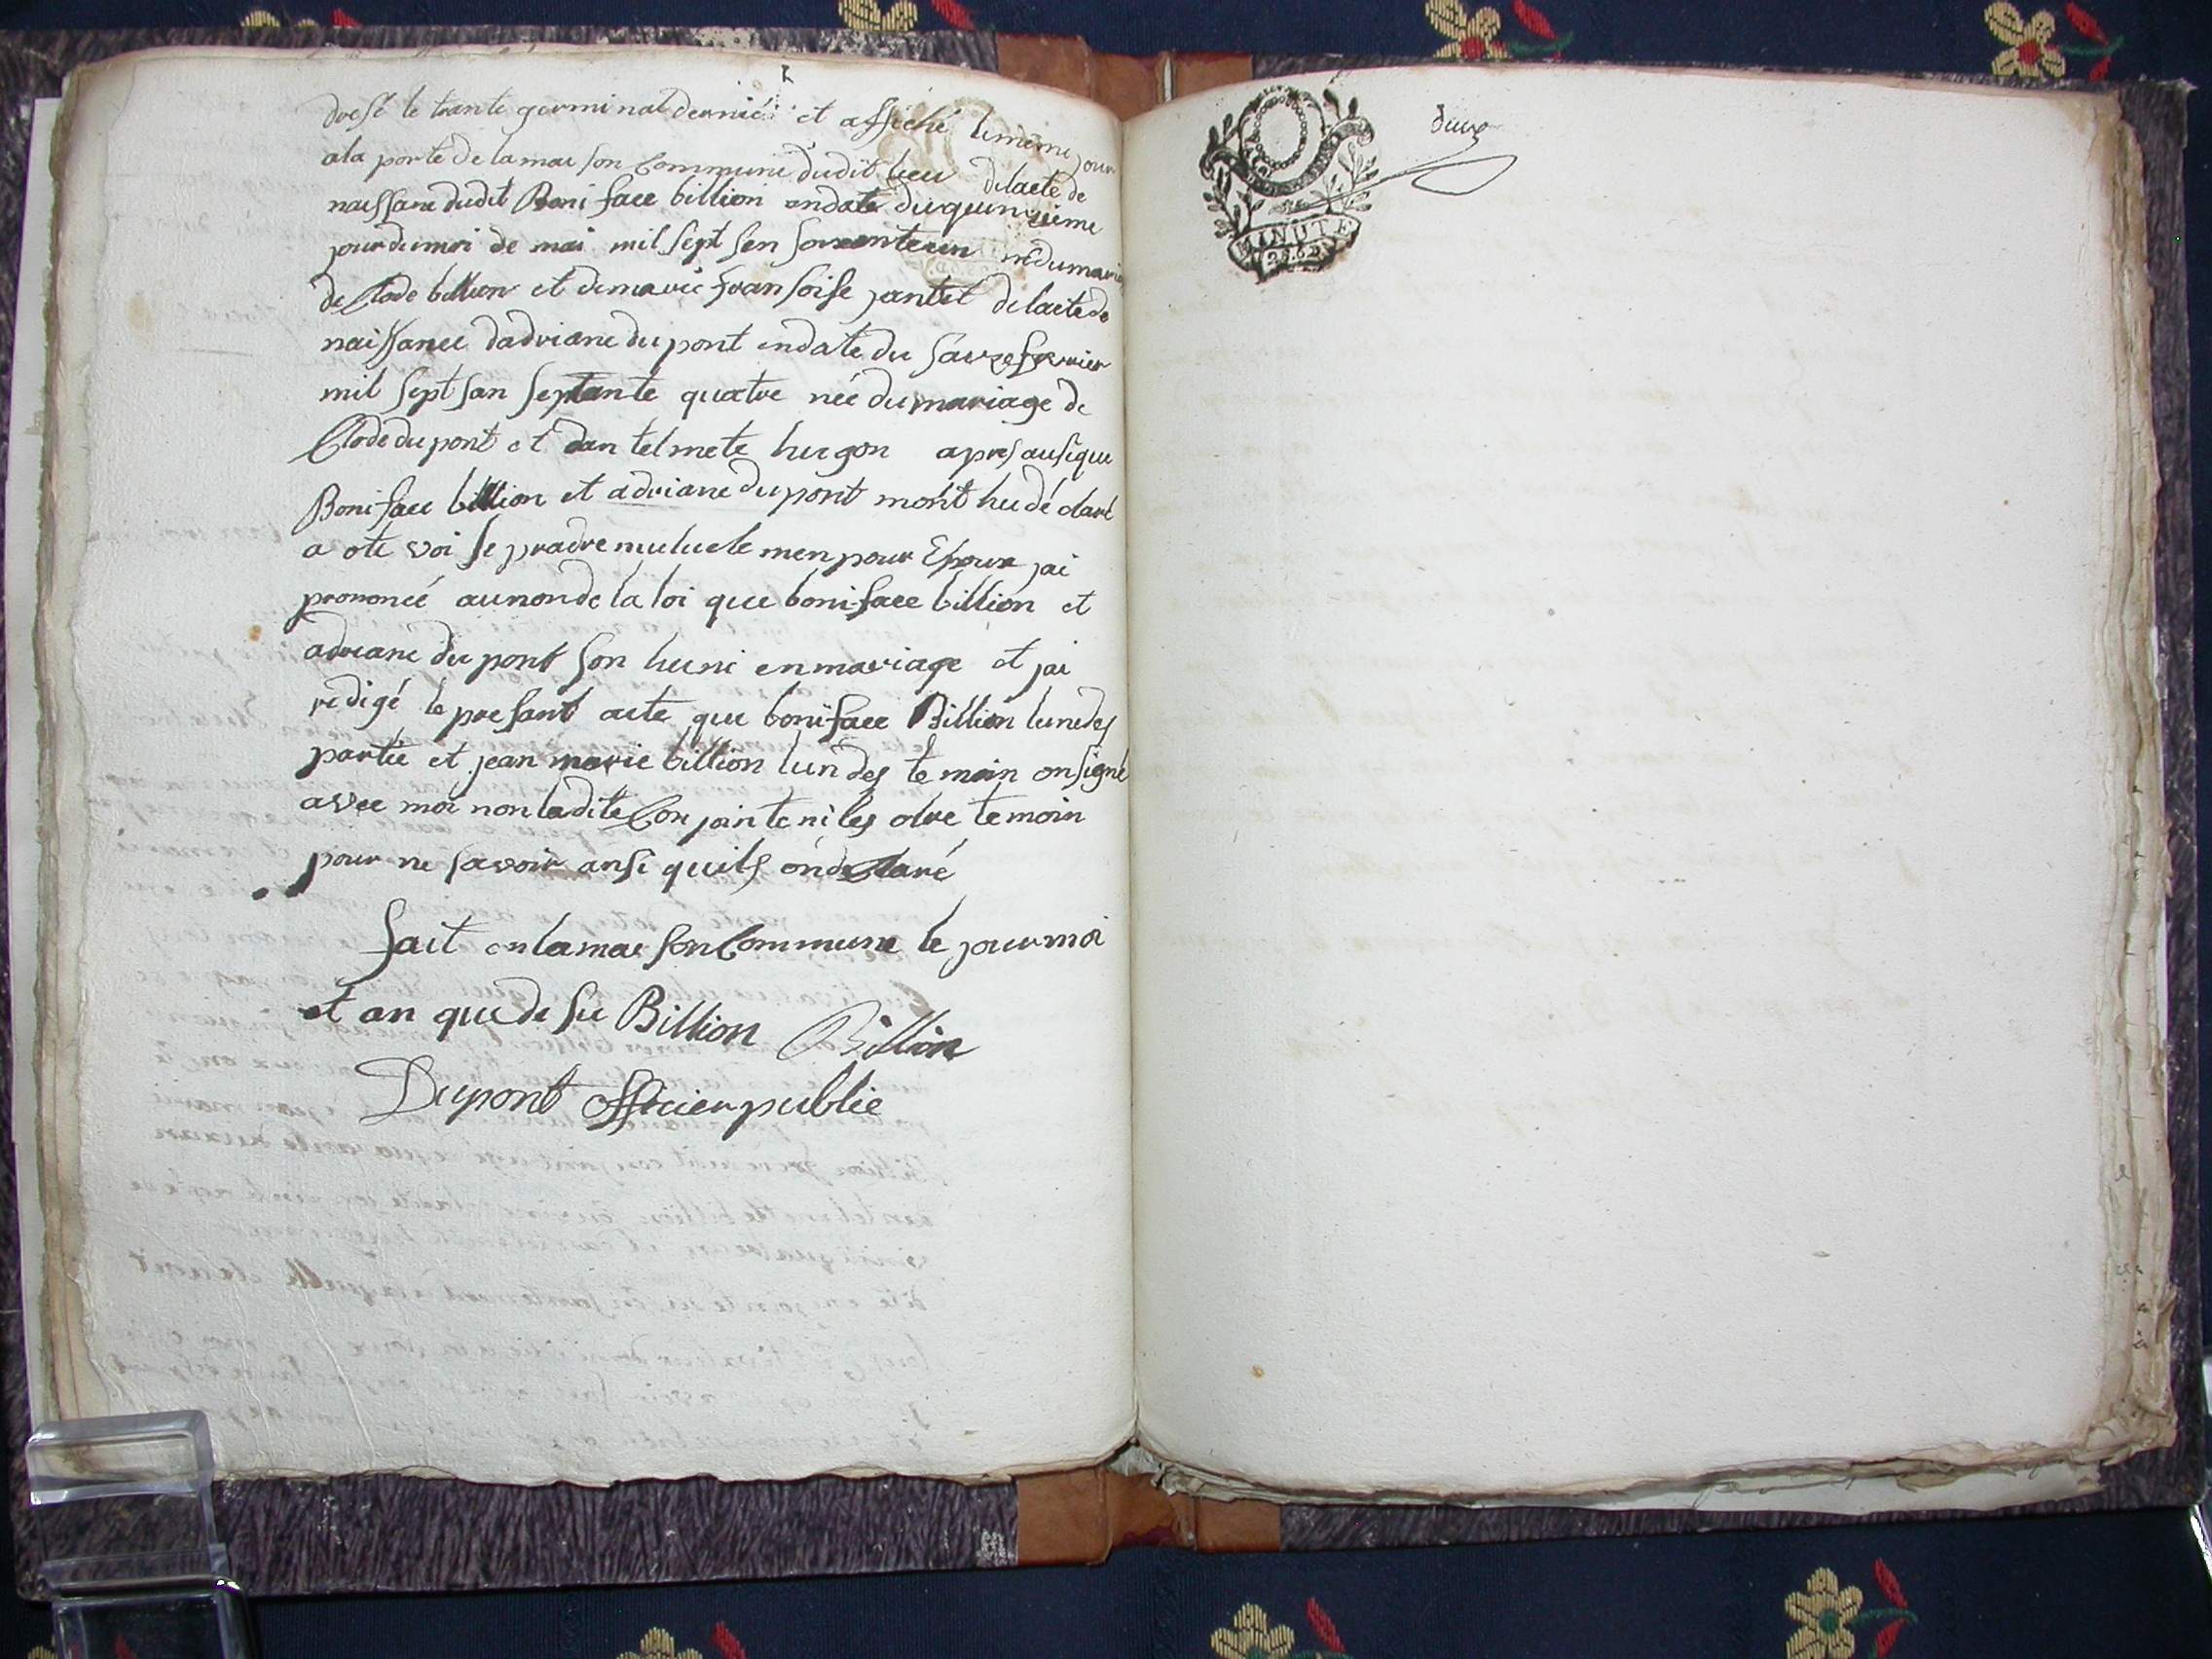 dresé le trante germinal dernié et affiché le mème jour
a la porte de la mai son Commune dudit lieu de lacte de
naissane dudit Boni face billion en date du quinsième
jour du moi de mai mil sept sen soixante un né du maria
de Clode billion et de marie fransoise jantet de lacte de
naissance dadriane du pont en date du saize fevrier
mil sept san septante quatre née du mariage de
Clode du pont et dan telmete hugon apres ausi que
Boniface billion et adriane du pont mont hu déclaré
a ote voi se pradre mutuele men pour Epoux jai
prononcé au non de la loi que boniface billion et
adriane du pont son huni en mariage et jai
redigé le presant acte que boniface Billion lune des
partie et jean marie billion lun des te moin on signé
avec moi non ladite Con jointe ni les otre te moin
pour ne savoir ansi quils on déclaré
fait en la mai son Commune le jour moi
et an que de su Billion Billion
Dupont officier public
MINUTE